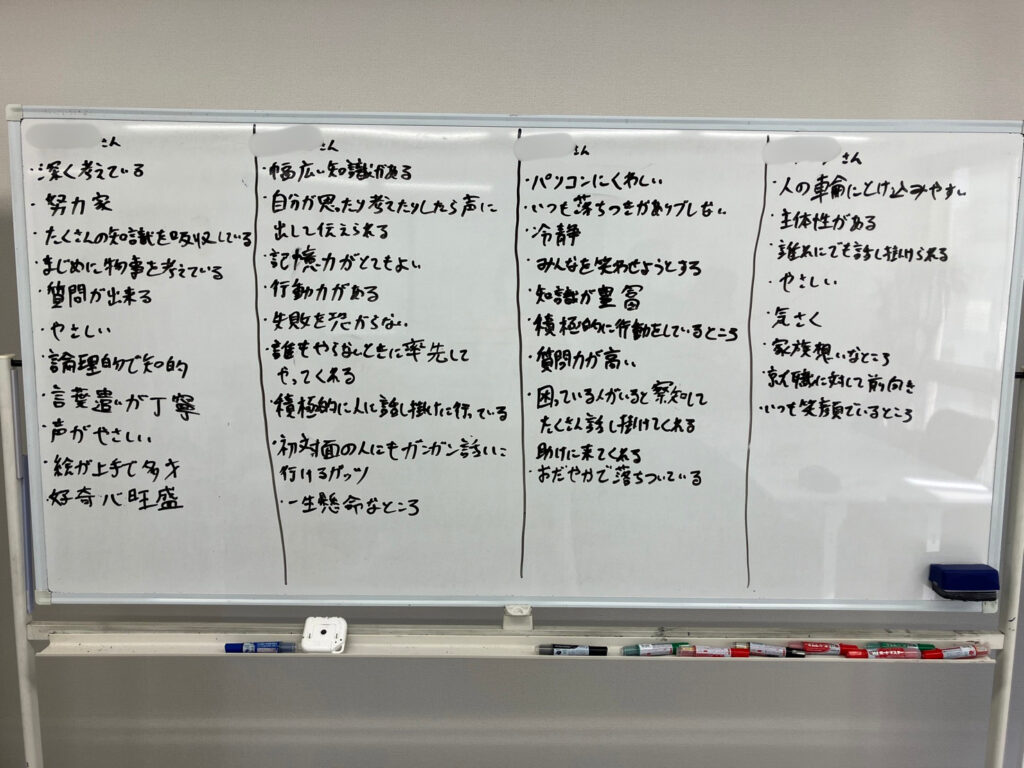 さん
・深く考えている
・努力家
・たくさんの知識を吸収している
・まじめに物事を考えている
・質問が出来る
・やさしい
・論理的で知的
・言葉遣いが丁寧
・声がやさしい
・絵が上手で多才
・好奇心旺盛
さん
・幅広い知識がある
・自分が思ったり考えたりしたら声に
出して伝えられる
・記憶力がとてもよい
・行動力がある
・失敗を恐からない
・誰もやらないときに率先して
やってくれる
・積極的に人に話し掛けに行っている
・初対面の人にもガンガン話しに
行けるガッツ
・一生懸命なところ
さん
・パソコンにくわしい
・いつも落ちつきがありブレない
・冷静
・みんなを笑わせようとする
・知識が豊富
・積極的に行動をしているところ
・質問力が高い
・困っている人がいると察知して
たくさん話し掛けてくれる
助けに来てくれる
・おだやかで落ちついている
さん
・人の車輪にとけ込みやすい
・主体性がある
・誰れにでも話し掛けられる
・やさしい
・気さく
・家族想いなところ
・就職に対して前向き
・いつも笑顔でいるところ